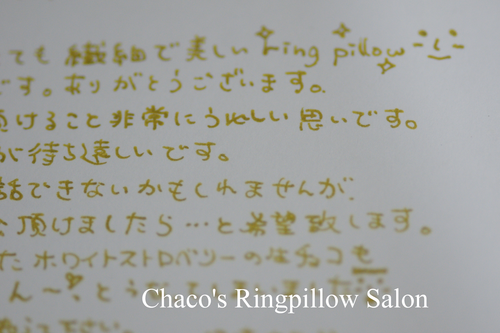 ても繊細で美しいring pillow
です。ありがとうございます。
頂けること非常にうれしい思いです。
が待ち遠しいです。
話できないかもしれませんが、
頂けましたら…と希望致します。
たホワイトストロベリーの生チョコも
Chaco's Ringpillow Salon